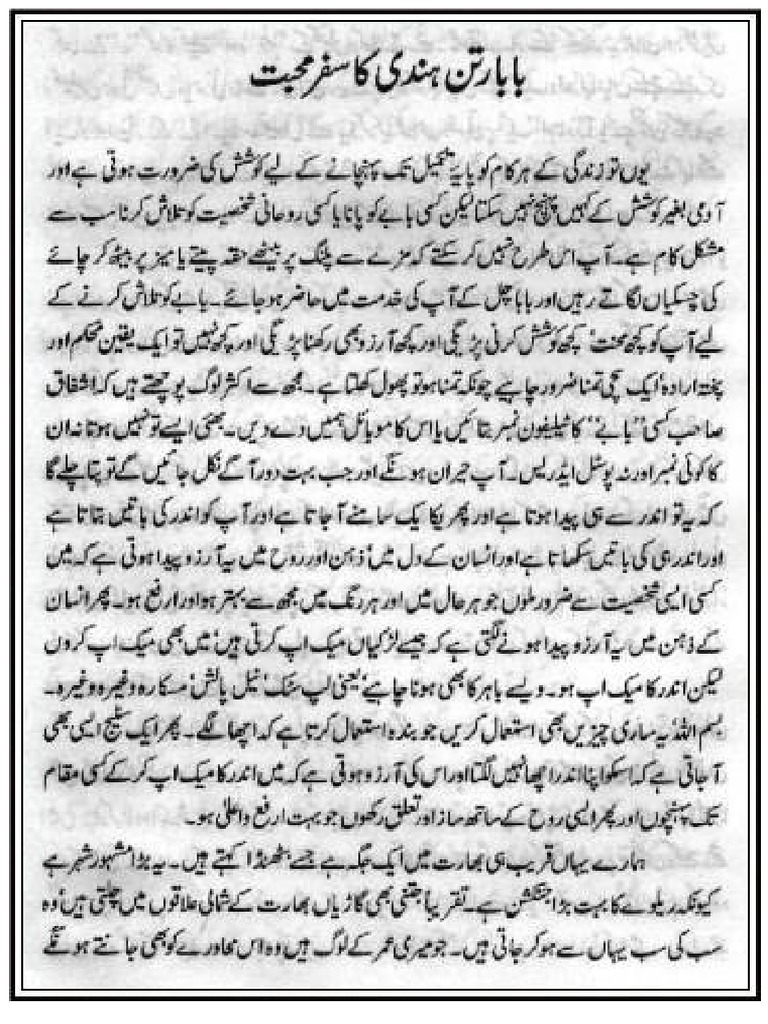 بابا رتن ہندی کا سفر محبت
یوں تو زندگی کے ہر کام کو پایۂ تکمیل تک پہنچانے کے لیے کوشش کی ضرورت ہوتی ہے اور
آدمی بغیر کوشش کے کہیں پہنچ نہیں سکتا لیکن کسی بابے کو پانا یا کسی روحانی شخصیت کو تلاش کرنا سب سے
مشکل کام ہے۔ آپ اس طرح نہیں کر سکتے کہ مزے سے پلنگ پر بیٹھے حقہ پیتے یا میز پر بیٹھ کر چائے
کی چسکیاں لگاتے رہیں اور بابا چل کے آپ کی خدمت میں حاضر ہو جائے۔ بابے کو تلاش کرنے کے
لیے آپ کو کچھ محنت' کچھ کوشش کرنی پڑیگی اور کچھ آرزو بھی رکھنا پڑیگی اور کچھ نہیں تو ایک یقین محکم اور
پختہ ارادہ' ایک سچی تمنا ضرور چاہیے چونکہ تمنا ہو تو پھول کھلتا ہے۔ مجھ سے اکثر لوگ پوچھتے ہیں کہ اشفاق
صاحب کسی ''بابے'' کا ٹیلیفون نمبر بتائیں یا اس کا موبائل ہمیں دے دیں۔ بھئی ایسے تو نہیں ہوتا نہ ان
کا کوئی نمبر اور نہ پوسٹل ایڈریس۔ آپ حیران ہونگے اور جب بہت دور آگے نکل جائیں گے تو پتا چلے گا
کہ یہ تو اندر سے ہی پیدا ہوتا ہے اور پھر یکا یک سامنے آ جاتا ہے اور آپ کو اندر کی باتیں بتاتا ہے
اور اندر ہی کی باتیں سکھاتا ہے اور انسان کے دل میں' ذہن اور روح میں یہ آرزو پیدا ہوتی ہے کہ میں
کسی ایسی شخصیت سے ضرور ملوں جو ہر حال میں اور ہر رنگ میں مجھ سے بہتر ہو اور ارفع ہو۔ پھر انسان
کے ذہن میں یہ آرزو پیدا ہونے لگتی ہے کہ جیسے لڑکیاں میک اپ کرتی ہیں' میں بھی میک اپ کروں
لیکن اندر کا میک اپ ہو۔ ویسے باہر کا بھی ہونا چاہیے' یعنی لپ سٹک' نیل پالش' مسکارہ وغیرہ وغیرہ۔
بسم اللہ' یہ ساری چیزیں بھی استعمال کریں جو بندہ استعمال کرتا ہے کہ اچھا لگے۔ پھر ایک سٹیج ایسی بھی
آ جاتی ہے کہ اسکو اپنا اندر اچھا نہیں لگتا اور اس کی آرزو ہوتی ہے کہ میں اندر کا میک اپ کر کے کسی مقام
تک پہنچوں اور پھر ایسی روح کے ساتھ ساز اور تعلق رکھوں جو بہت ارفع و اعلیٰ ہو۔
ہمارے یہاں قریب ہی بھارت میں ایک جگہ ہے جسے بٹھنڈا کہتے ہیں۔ یہ بڑا مشہور شہر ہے
کیونکہ ریلوے کا بہت بڑا جنکشن ہے۔ تقریباً جتنی بھی گاڑیاں بھارت کے شمالی علاقوں میں چلتی ہیں' وہ
سب کی سب یہاں سے ہو کر جاتی ہیں۔ جو میری عمر کے لوگ ہیں وہ اس محاورے کو بھی جانتے ہونگے